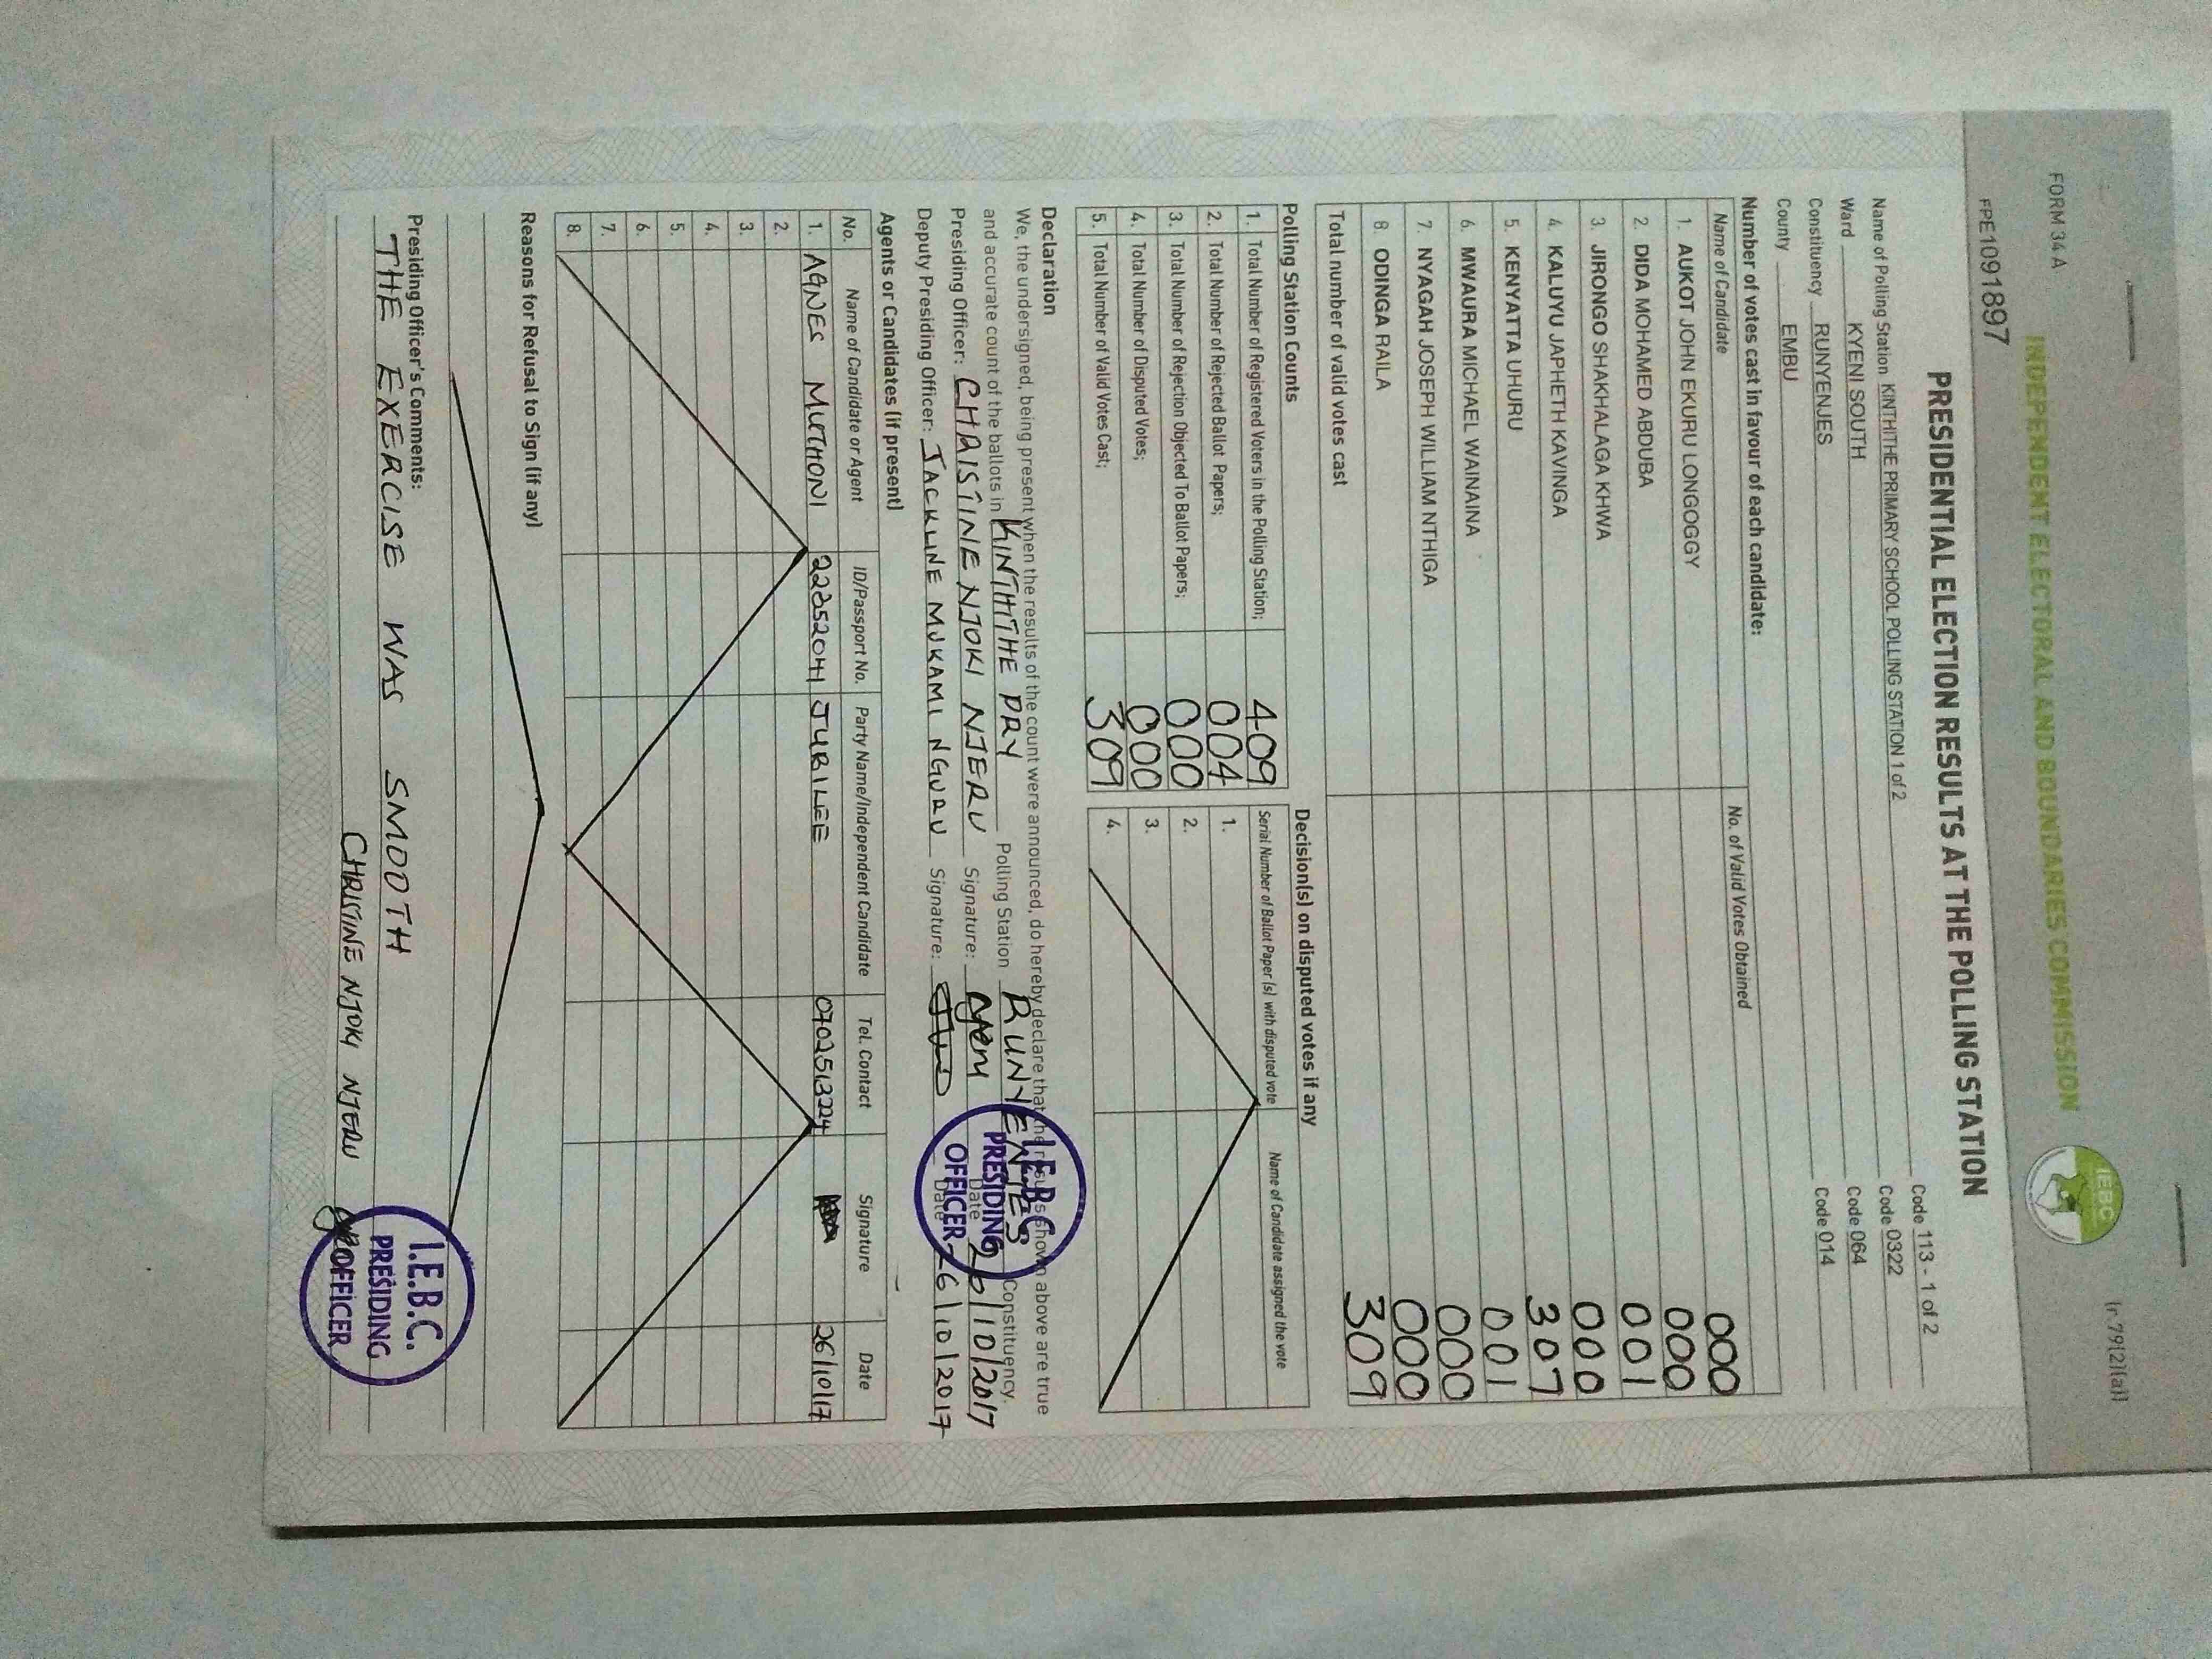 FORM 34 A
(r.79(2)(a))
INDEPENDENT ELECTORAL AND BOUNDARIES COMMISSION
IEBC
FPE1091897
PRESIDENTIAL ELECTION RESULTS AT THE POLLING STATION
Name of Polling Station KINTHITHE PRIMARY SCHOOL POLLING STATION 1 of 2 Code 113 - 1 of 2
Ward KYENI SOUTH Code 0322
Constituency RUNYENJES Code 064
County EMBU Code 014
Number of votes cast in favour of each candidate:
Name of Candidate No. of Valid Votes Obtained
1. AUKOT JOHN EKURU LONGOGGY 000
2. DIDA MOHAMED ABDUBA 000
3. JIRONGO SHAKHALAGA KHWA 001
4. KALUYU JAPHETH KAVINGA 000
5. KENYATTA UHURU 307
6. MWAURA MICHAEL WAINAINA 001
7. NYAGAH JOSEPH WILLIAM NTHIGA 000
8. ODINGA RAILA 000
Total number of valid votes cast 309
Polling Station Counts
1. Total Number of Registered Voters in the Polling Station; 409
2. Total Number of Rejected Ballot Papers; 004
3. Total Number of Rejection Objected To Ballot Papers; 000
4. Total Number of Disputed Votes; 000
5. Total Number of Valid Votes Cast; 309
Decision(s) on disputed votes if any
Serial Number of Ballot Paper (s) with disputed vote Name of Candidate assigned the vote
1.
2.
3.
4.
Declaration
We, the undersigned, being present when the results of the count were announced, do hereby declare that the results shown above are true
and accurate count of the ballots in KINTHITHE PRY Polling Station RUNYENJES Constituency.
Presiding Officer: CHRISTINE NJOKI NJERU Signature: Njeru Date 26/10/2017
Deputy Presiding Officer: JACKLINE MUKAMI NGURU Signature: Date 26/10/2017
I.E.B.C.
PRESIDING
OFFICER
Agents or Candidates (if present)
No. Name of Candidate or Agent ID/Passport No. Party Name/Independent Candidate Tel. Contact Signature Date
1. AGNES MUTHONI 22252041 JUBILEE 0702513224 26/10/17
2.
3.
4.
5.
6.
7.
8.
Reasons for Refusal to Sign (if any)
Presiding Officer's Comments:
THE EXERCISE WAS SMOOTH
CHRISTINE NJOKI NJERU
I.E.B.C.
PRESIDING
OFFICER